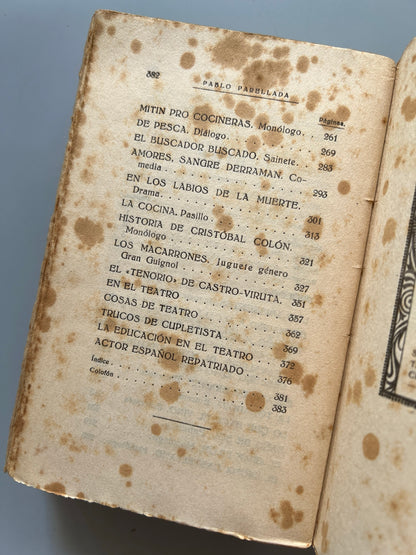 382 PABLO PARELLADA
Páginas.
MITIN PRO COCINERAS. Monólogo. 261
DE PESCA. Diálogo. 269
EL BUSCADOR BUSCADO. Sainete. 283
AMORES, SANGRE DERRAMAN. Co-
media 293
EN LOS LABIOS DE LA MUERTE.
Drama 301
LA COCINA. Pasillo 313
HISTORIA DE CRISTÓBAL COLÓN.
Monólogo 321
LOS MACARRONES. Juguete género
Gran Guignol 327
EL «TENORIO» DE CASTRO-VIRUTA. 351
EN EL TEATRO 357
COSAS DE TEATRO 362
TRUCOS DE CUPLETISTA 369
LA EDUCACIÓN EN EL TEATRO 372
ACTOR ESPAÑOL REPATRIADO 376
Índice 381
Colofón 383